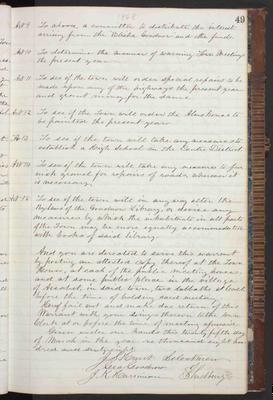 1868
49
Art 9 To choose a committee to distribute the interest
arising from the Donation and the funds.
Art 10 To determine the manner of warning Town Meetings
the present year.
Art 11 To see if the town will order special repairs to be
made upon any of the highways the present year
and grant money for the same.
Art 12 To see if the Town will order the Almshouse to
be painted the present year.
Art 13 To see if the town will take any measures to
establish a High School in the District.
Art 14 To see if the town will take any measures to
gravel for repairs of roads, whenever it
is necessary.
Art 15 To see if the town will in any way alter the
Bylaws of the Goodnow Library, or devise any
measures by which the inhabitants in all parts
of the Town may be more equally accommodated
with books of said library.
And you are directed to serve this warrant
by posting an attested copy thereof at the Town
House, at each of the public meeting houses,
and at some public place in the village
of Assabet, in said town, seven days at least
before the time of holding said meeting.
Hereof fail not and make due return of this
Warrant with your doings thereon to the Town
Clerk at or before the time of meeting aforesaid.
Given under our hands this twenty fifth day
of March in the year one thousand eight hun
dred and sixty eight.
J. P. Selectmen
of
Sudbury